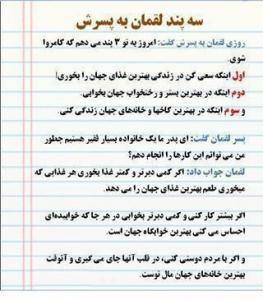 سه پند لقمان به پسرش
روزی لقمان به پسرش گفت: امروز به تو ۳ پند می دهم که کامروا
شوی.
اول اینکه سعی کن در زندگی بهترین غذای جهان را بخوری!
دوم اینکه در بهترین بستر و رختخواب جهان بخوابی.
و سوم اینکه در بهترین کاخها و خانه‌های جهان زندگی کنی.
پسر لقمان گفت: ای پدر ما یک خانواده بسیار فقیر هستیم چطور
من می توانم این کارها را انجام دهم؟
لقمان جواب داد: اگر کمی دیرتر و کمتر غذا بخوری هر غذایی که
میخوری طعم بهترین غذای جهان را می دهد.
اگر بیشتر کار کنی و کمی دیرتر بخوابی در هر جا که خوابیده‌ای
احساس می کنی بهترین خوابگاه جهان است.
و اگر با مردم دوستی کنی، در قلب آنها جای می گیری و آنوقت
بهترین خانه‌های جهان مال توست.